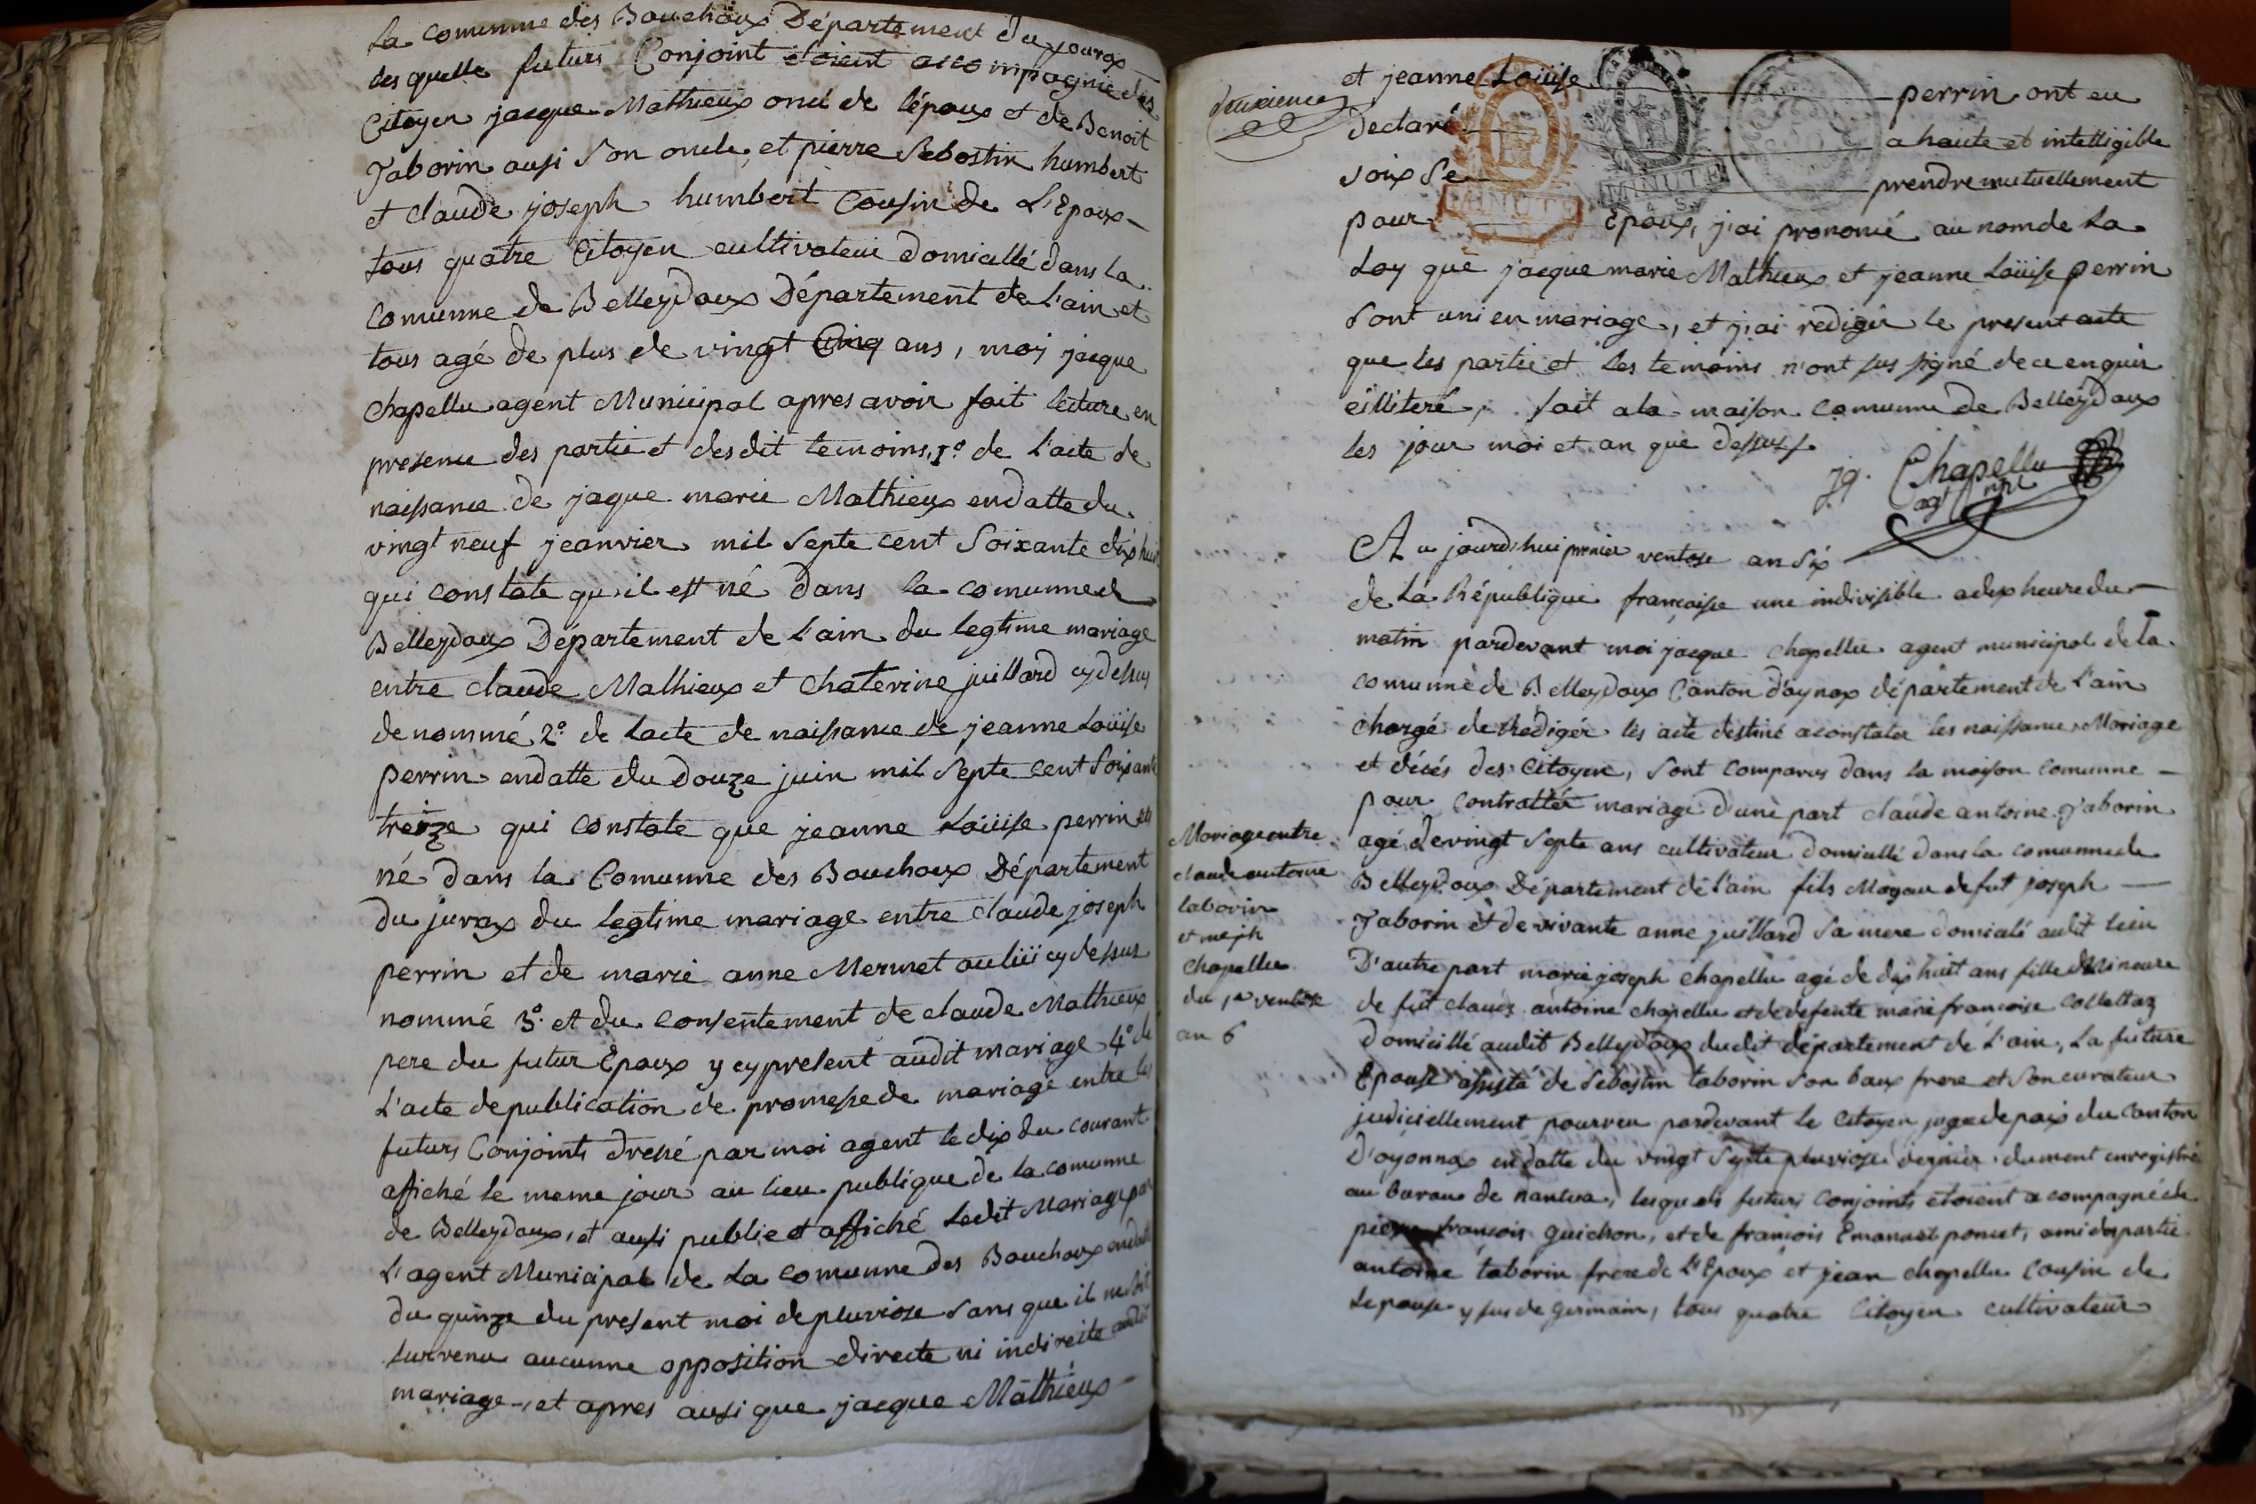 La comunne des Bouchoux Département du jourax
des quelle futurs Conjoint étoient accompagnié des
Citoyen jacque Mathieux oncle de lépoux et de Benoit
Taborin ausi Son oncle, et pierre Sebostin humbert
et claude joseph humbert Cousin de L'Epoux
tous quatre Citoyen cultivateur domicillé dans la
comunne de Belleydoux Département de L'ain et
tous agé de plus de vingt Cinq ans, moy jacque
Chapellu agent Municipal apres avoir fait lecture en
presence des partie et desdit temoins, 1º de L'acte de
naissance de jaque marie Mathieux endatte du
vingt neuf jeanvier mil Septe cent Soixante dix huit
qui constate qu'il est né dans la comunne de
Belleydoux Département de L'ain du legtime mariage
entre claude Mathieux et chaterine juillard cy dessus
denommé, 2º de lacte de naissance de jeanne Loüise
perrin endatte du douze juin mil Septe cent Soixante
treize qui constate que jeanne Loüise perrin est
né dans la Comunne des Bouchoux Département
du jurax du legtime mariage entre claude joseph
perrin et de marie anne Mermet auliü cy dessus
nommé 3º. et du consentement de claude Mathieux
pere du futur Epoux y cy present audit mariage 4º de
L'acte depublication de promesse de mariage entre les
futurs Conjoints dressé par moi agent le dix du courant
affiché le meme jour au lieu publique de la comunne
de Belleydoux, et ausi publie et affiché Ledit Mariage par
L'agent Municipal de La comunne des Bouchoux endatte
du quinze du present moi de pluviose Sans que il ne Soit
survenu aucunne opposition directe ni indirecte audit
mariage, et apres ausi que jacque Mathieux
deuxieme
et jeanne Loüise perrin ont eu
declaré a haute et intelligible
voix Se prendre mutuellement
MINUTE
MINUTE
pour Epoux, j'ai prononcé au nom de La
Loy que jacque marie Mathieux et jeanne Loüise perrin
Sont uni en mariage, et j'ai redigér le present acte
que les partie et les temoins n'ont sus signé de ce enquir
eilliteré, fait a la maison comunne de Belleydoux
les jour moi et an que dessus
Jq. Chapellu
agt mpl
Au jourd'hui premier ventose an Six
de La République francaise une indivisible a dix heure du
matin pardevant moi jacque chapellu agent municipal de la
comunne de Belleydoux Canton d'oynax département de L'ain
chargé de Redigér les acte destiné a constater les naissance, Mariage
et décés des Citoyen, Sont comparus dans la maison comunne
pour contratter mariage d'une part claude antoine Taborin
agé de vingt Septe ans cultivateur domicillé dans la comunne de
Belleydoux Département de L'ain fils Majeur de fut joseph
Taborin et de vivante anne juillard Sa mere domicilé audit lieu
D'autre part marie joseph chapellu agé de dix huit ans fille Mineure
de fut claude antoine chapellu et de defente marie francoise Collettaz
domicillé audit Belleydoux dudit département de L'ain, La future
Epouse assisté de Sebostin taborin Son baux frere et Son curateur
judiciellement pourveu pardevant le Citoyen juge de paix du Canton
D'oyonnax en datte du vingt Septe pluviose dernier dument enregistré
au bureau de nantua, lesquels futurs conjoints etoient acompagné de
pierre francois guichon, et de francois Emanuel poncet, ami des partie
antoine taborin frere de L'Epoux et jean chapellu Cousin de
Lepouse y sus de germain, tous quatre Citoyen cultivateur
Mariage entre
claude antoine
taborin
et me jh
Chapellu
du 1er ventose
an 6